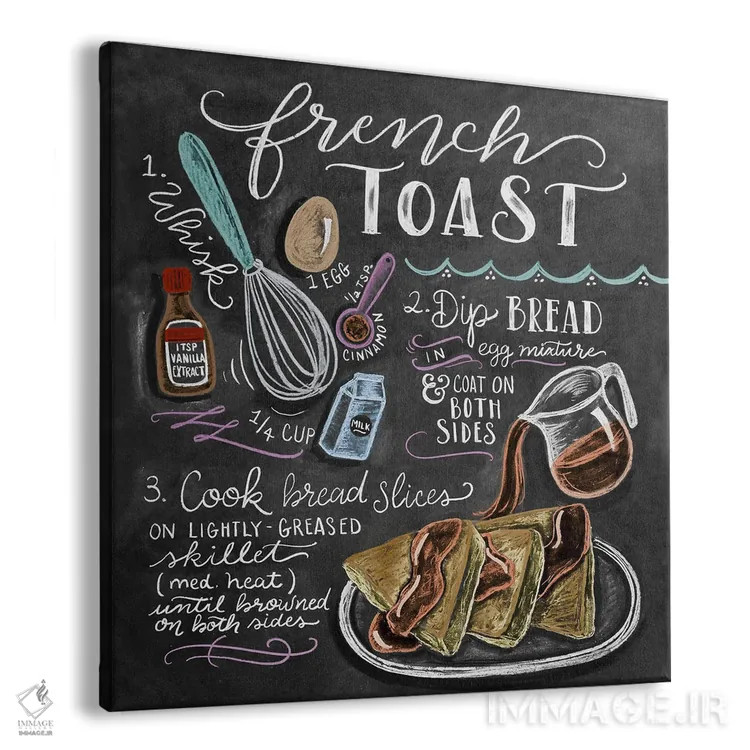 french
TOAST
1. Whisk
1 EGG
1/2 TSP.
CINNAMON
1TSP
VANILLA
EXTRACT
1/4 CUP
MILK
2. Dip BREAD
IN egg mixture
& COAT ON
BOTH
SIDES
3. Cook bread slices
ON LIGHTLY-GREASED
skillet
(med. heat)
until browned
on both sides
IMMAGE
GALLERY
IMMAGE.IR
IMMAGE.IR